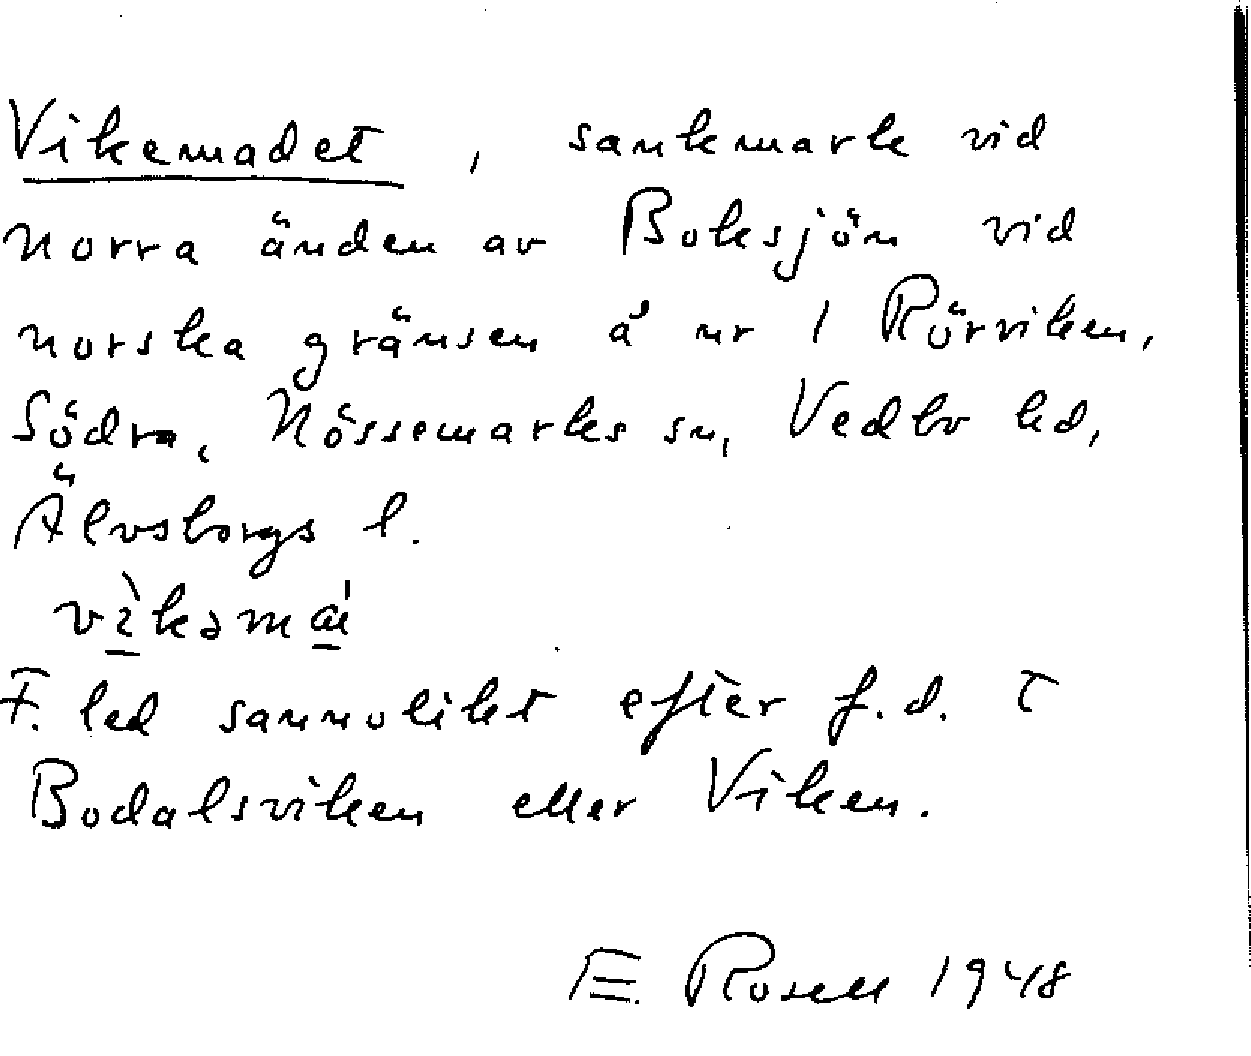 Vikemadet, sankmark vid
norra änden av Boksjön vid
norska gränsen å nr 1 Rörviken,
Södra, Nössemarks sn, Vedbo hd,
Älvsborgs l.
F. led sannolikt efter f.d. t
Bodalsviken eller Viken.
E. Rosell 1948